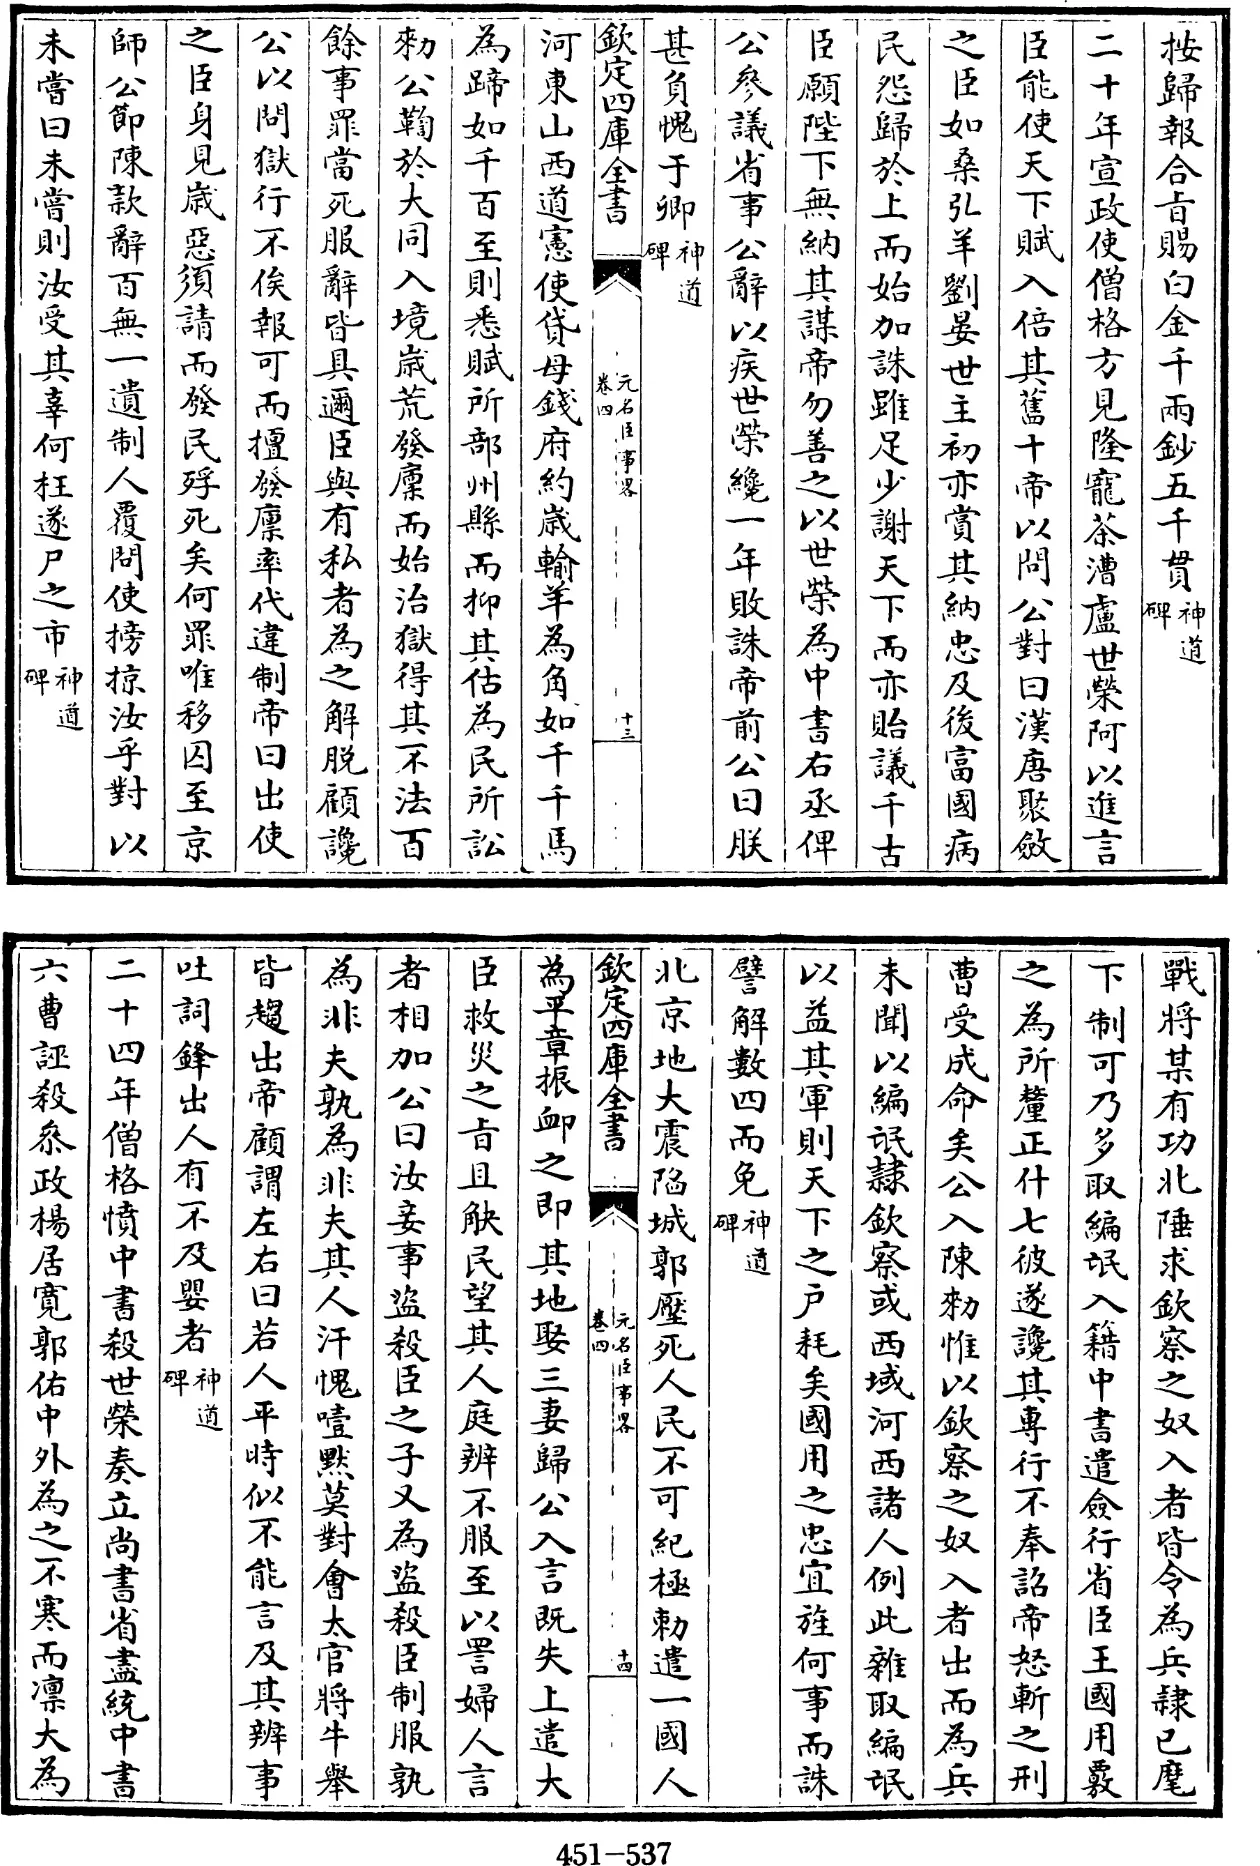 按歸報合㫖賜白金千兩鈔五千貫神道碑
二十年宣政使僧格方見隆寵茶漕盧世榮阿以進言
臣能使天下賦入倍其舊十帝以問公對曰漢唐聚斂
之臣如桑弘羊劉晏世主初亦賞其納忠及後富國病
民怨歸於上而始加誅雖足少謝天下而亦貽議千古
臣願陛下無納其謀帝勿善之以世榮為中書右丞俾
公參議省事公辭以疾世榮纔一年敗誅帝前公曰朕
甚負愧于卿神道碑
欽定四庫全書
元名臣事畧
卷四
十三
河東山西道憲使貸母錢府約歲輸羊為角如千千馬
為蹄如千百至則悉賦所部州縣而抑其估為民所訟
勑公鞫於大同入境歲荒發廪而始治獄得其不法百
餘事罪當死服辭皆具邇臣與有私者為之解脱顧讒
公以問獄行不俟報可而擅發廪率代違制帝曰出使
之臣身見歲惡須請而發民殍死矣何罪唯移囚至京
師公節陳款辭百無一遺制人覆問使搒掠汝乎對以
未嘗曰未嘗則汝受其辜何枉遂尸之市神道碑
戰將某有功北陲求欽察之奴入者皆令為兵隷已麾
下制可乃多取編氓入籍中書遣僉行省臣王國用覈
之為所釐正什七彼遂讒其專行不奉詔帝怒斬之刑
曹受成命矣公入陳勑惟以欽察之奴入者出而為兵
未聞以編氓隷欽察或西域河西諸人例此雜取編氓
以益其軍則天下之户耗矣國用之忠宜旌何事而誅
譬解數四而免神道碑
北京地大震陷城郭壓死人民不可紀極勑遣一國人
欽定四庫全書
元名臣事畧
卷四
十四
為平章振卹之即其地娶三妻歸公入言既失上遣大
臣救災之㫖且觖民望其人庭辨不服至以詈婦人言
者相加公曰汝妾事盜殺臣之子又為盜殺臣制服孰
為非夫孰為非夫其人汗愧噎黙莫對會太官將牛舉
皆趨出帝顧謂左右曰若人平時似不能言及其辨事
吐詞鋒出人有不及嬰者神道碑
二十四年僧格憤中書殺世榮奏立尚書省盡統中書
六曹誣殺叅政楊居寛郭佑中外為之不寒而凛大為
451-537